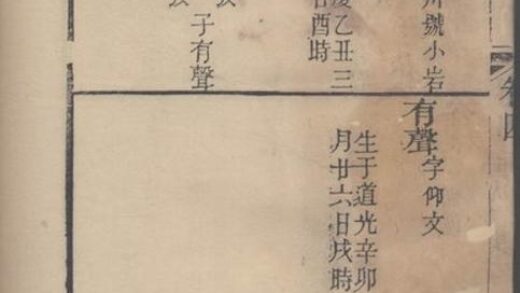 卷四
號小岩
慶乙丑三
酉時
子有聲
有聲 字仰文
生于道光辛卯
月廿六日戌時